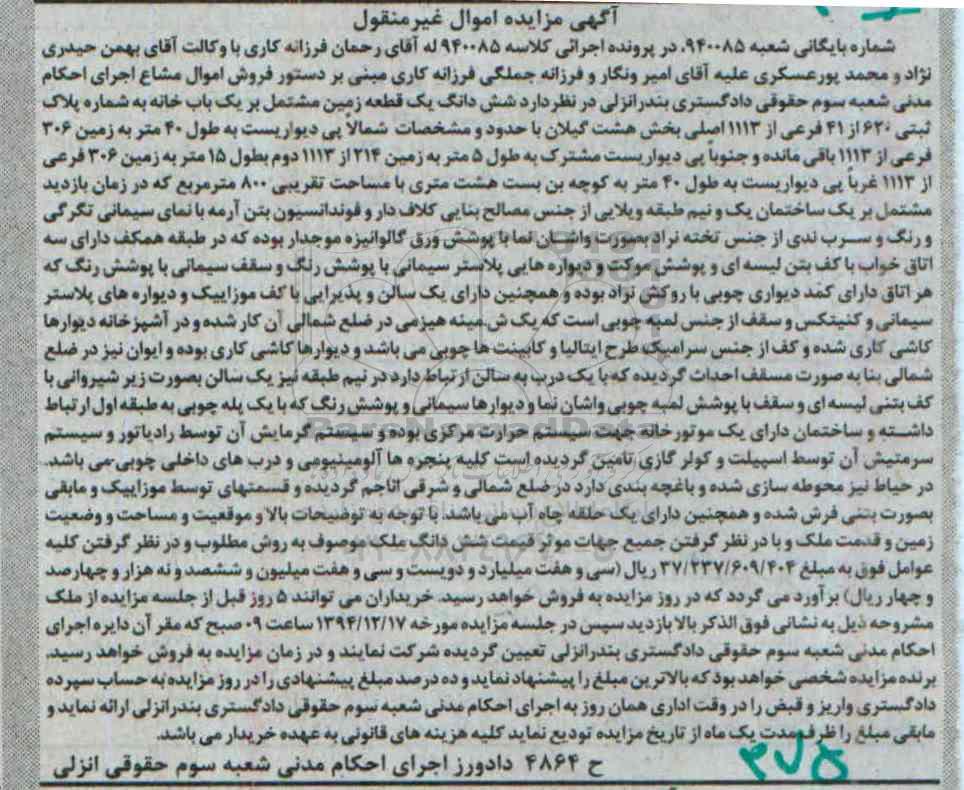 آگهی مزایده اموال غیرمنقول
شماره بایگانی شعبه ۹۴۰۰۸۵، در پرونده اجرائی کلاسه ۹۴۰۰۸۵ له آقای رحمان فرزانه کاری با وکالت آقای بهمن حیدری
نژاد و محمد پورعسکری علیه آقای امیر ونگار و فرزانه جملگی فرزانه کاری مبنی بر دستور فروش اموال مشاع اجرای احکام
مدنی شعبه سوم حقوقی دادگستری بندرانزلی در نظردارد شش دانگ یک قطعه زمین مشتمل بر یک باب خانه به شماره پلاک
ثبتی ۶۲۰ از ۴۱ فرعی از ۱۱۱۳ اصلی بخش هشت گیلان با حدود و مشخصات شمالاً پی دیواریست به طول ۴۰ متر به زمین ۳۰۶
فرعی از ۱۱۱۳ باقی مانده و جنوباً پی دیواریست مشترک به طول ۵ متر به زمین ۲۱۴ از ۱۱۱۳ دوم بطول ۱۵ متر به زمین ۳۰۶ فرعی
از ۱۱۱۳ غرباً پی دیواریست به طول ۴۰ متر به کوچه بن بست هشت متری با مساحت تقریبی ۸۰۰ مترمربع که در زمان بازدید
مشتمل بر یک ساختمان یک و نیم طبقه ویلایی از جنس مصالح بنایی کلاف دار و فوندانسیون بتن آرمه با نمای سیمانی تگرگی
و رنگ و سرب ندی از جنس تخته نراد بصورت واشان نما با پوشش ورق گالوانیزه موجدار بوده که در طبقه همکف دارای سه
اتاق خواب با کف بتن لیسه ای و پوشش موکت و دیواره هایی پلاستر سیمانی با پوشش رنگ و سقف سیمانی با پوشش رنگ که
هر اتاق دارای کمد دیواری چوبی با روکش نراد بوده و همچنین دارای یک سالن و پذیرایی با کف موزاییک و دیواره های پلاستر
سیمانی و کنیتکس و سقف از جنس لمبه چوبی است که یک ش مینه هیزمی در ضلع شمالی آن کار شده و در آشپزخانه دیوارها
کاشی کاری شده و کف از جنس سرامیک طرح ایتالیا و کابینت ها چوبی می باشد و دیوارها کاشی کاری بوده و ایوان نیز در ضلع
شمالی بنا به صورت مسقف احداث گردیده که با یک درب به سالن ارتباط دارد در نیم طبقه نیز یک سالن بصورت زیر شیروانی با
کف بتنی لیسه ای و سقف با پوشش لمبه چوبی واشان نما و دیوارها سیمانی و پوشش رنگ که با یک پله چوبی به طبقه اول ارتباط
داشته و ساختمان دارای یک موتورخانه جهت سیستم حرارت مرکزی بوده و سیستم گرمایش آن توسط رادیاتور و سیستم
سرمتیش آن توسط اسپیلت و کولر گازی تامین گردیده است کلیه پنجره ها آلومینیومی و درب های داخلی چوبی می باشد.
در حیاط نیز محوطه سازی شده و باغچه بندی دارد در ضلع شمالی و شرقی انجام گردیده و قسمتهای توسط موزاییک و مابقی
بصورت بتنی فرش شده و همچنین دارای یک حلقه چاه آب می باشد. با توجه به توضیحات بالا و موقعیت و مساحت و وضعیت
زمین و قدمت ملک و با در نظر گرفتن جمیع جهات موثر قیمت شش دانگ ملک موصوف به روش مطلوب و در نظر گرفتن کلیه
عوامل فوق به مبلغ ۳۷/۲۳۷/۶۰۹/۴۰۴ ریال (سی و هفت میلیارد و دویست و سی و هفت میلیون و ششصد و نه هزار و چهارصد
و چهار ریال) برآورد می گردد که در روز مزایده به فروش خواهد رسید. خریداران می توانند ۵ روز قبل از جلسه مزایده از ملک
مشروحه ذیل به نشانی فوق الذکر بالا بازدید سپس در جلسه مزایده مورخه ۱۳۹۴/۱۲/۱۷ ساعت ۰۹ صبح که مقر آن دایره اجرای
احکام مدنی شعبه سوم حقوقی دادگستری بندرانزلی تعیین گردیده شرکت نمایند و در زمان مزایده به فروش خواهد رسید.
برنده مزایده شخصی خواهد بود که بالاترین مبلغ را پیشنهاد نماید و ده درصد مبلغ پیشنهادی را در روز مزایده به حساب سپرده
دادگستری واریز و قبض را در وقت اداری همان روز به اجرای احکام مدنی شعبه سوم حقوقی دادگستری بندرانزلی ارائه نماید و
مابقی مبلغ را ظرف مدت یک ماه از تاریخ مزایده تودیع نماید کلیه هزینه های قانونی به عهده خریدار می باشد.
ح ۴۸۶۴ دادورز اجرای احکام مدنی شعبه سوم حقوقی انزلی
ParsNamadData